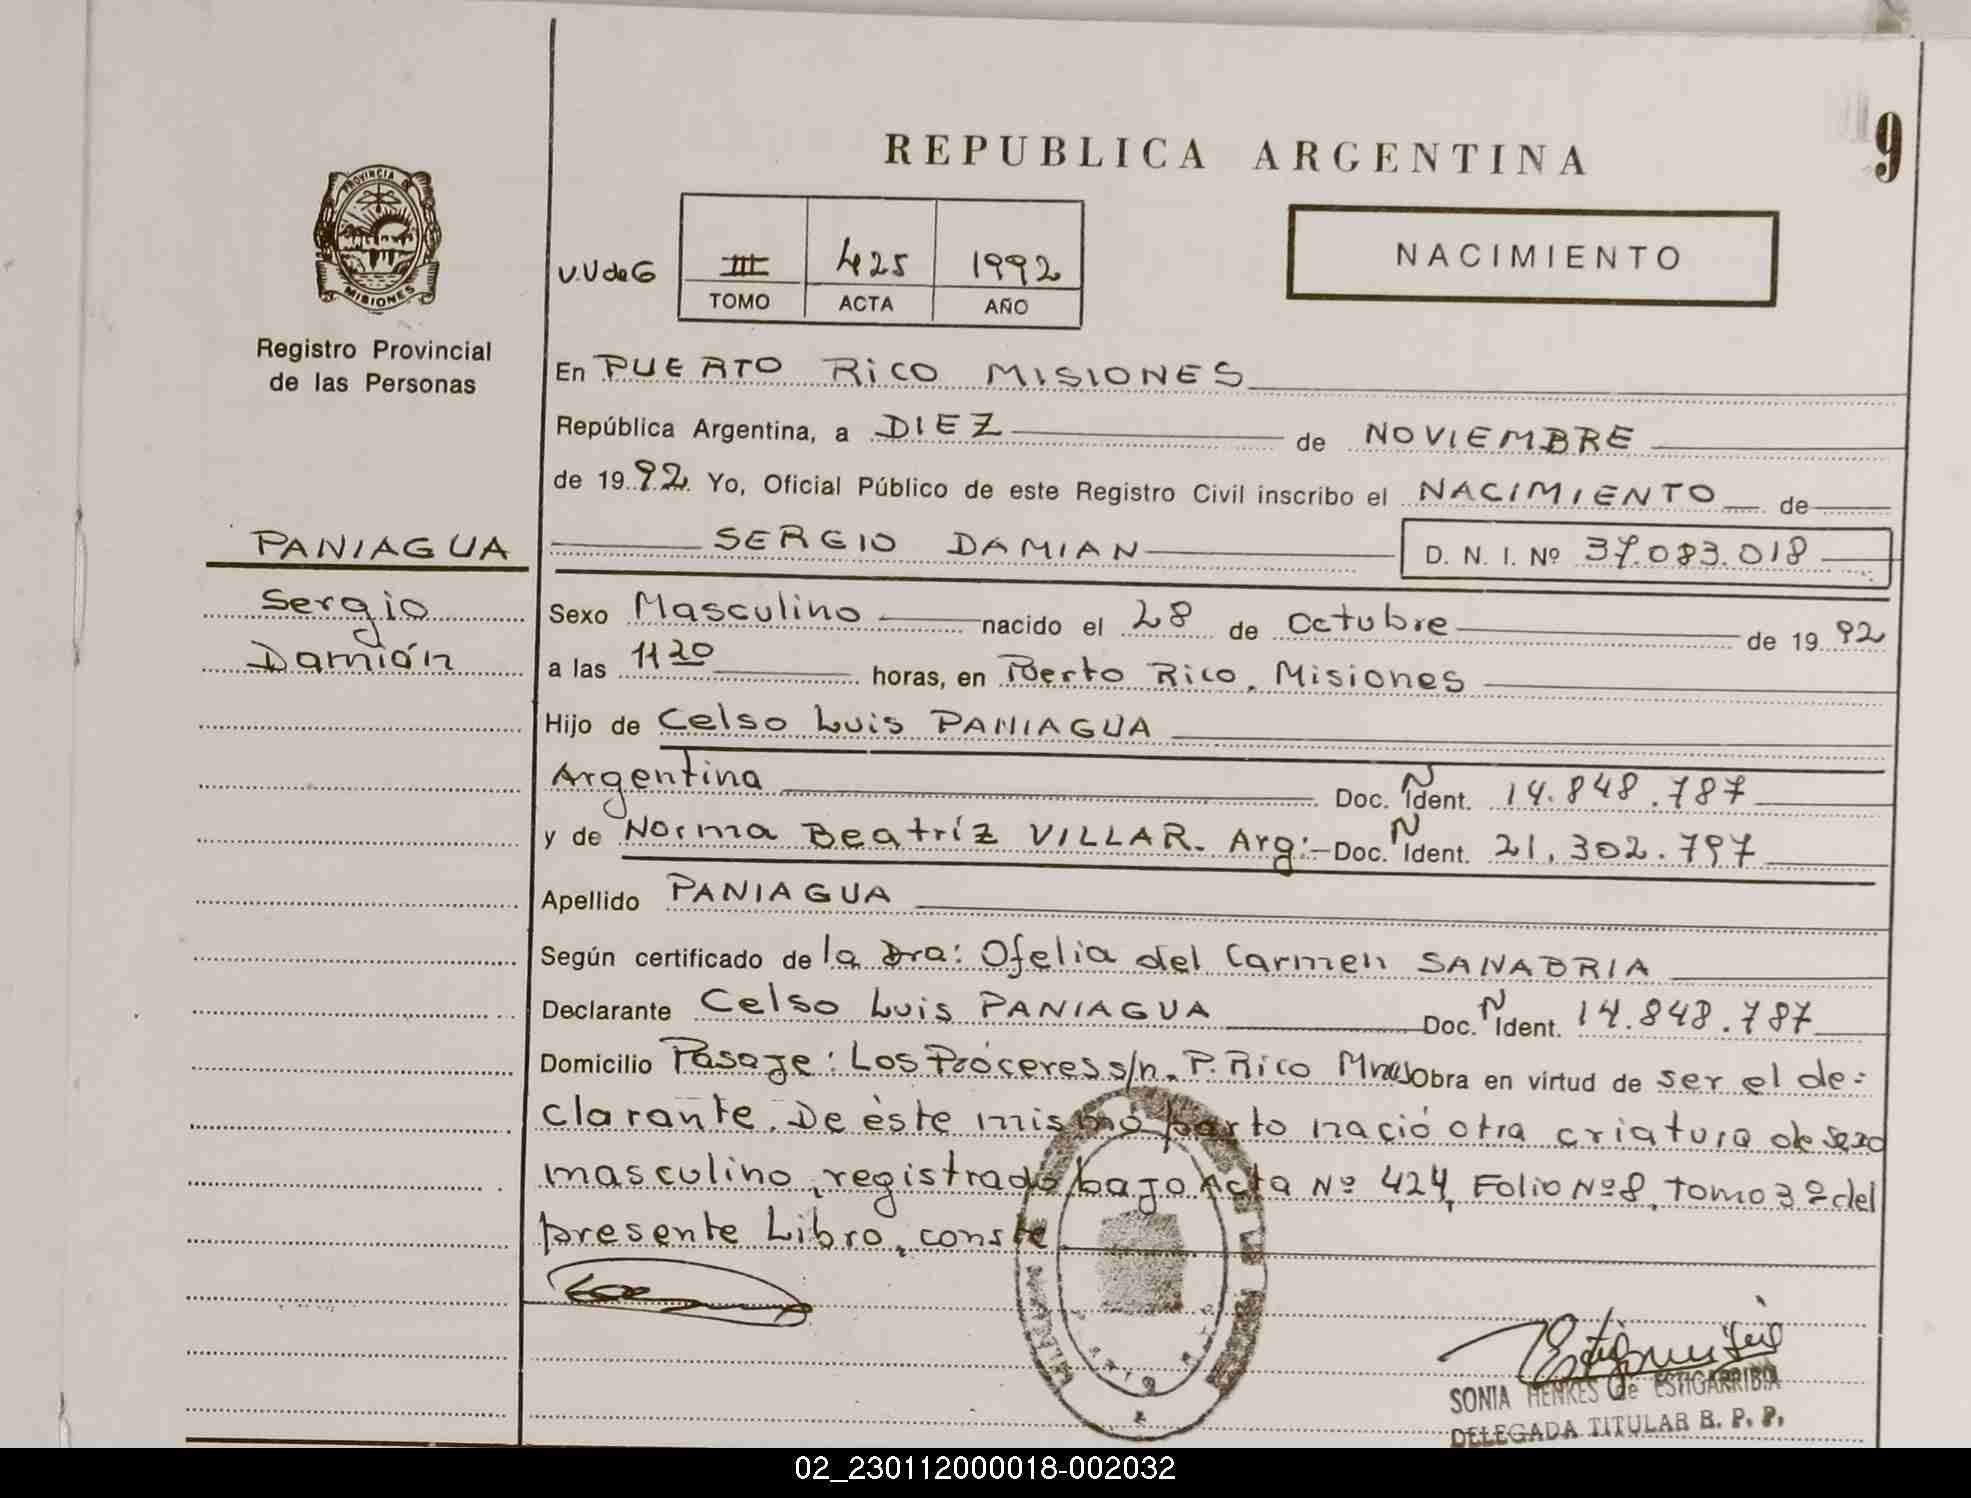 REPUBLICA ARGENTINA
9
PROVINCIA DE
MISIONES
Registro Provincial
de las Personas
V.V de G
III 425 1992
TOMO ACTA AÑO
NACIMIENTO
En PUERTO RICO MISIONES
República Argentina, a DIEZ de NOVIEMBRE
de 1992. Yo, Oficial Público de este Registro Civil inscribo el NACIMIENTO de
PANIAGUA
SERGIO DAMIAN D. N. I. Nº 37.083.018
Sergio
Sexo Masculino nacido el 28 de octubre de 1992
Damián
a las 11 20 horas, en Puerto Rico, Misiones
Hijo de Celso Luis PANIAGUA
Argentina Doc. N Ident. 14.848.787
y de Norma Beatríz VILLAR. Arg:- Doc. N Ident. 21.302.797
Apellido PANIAGUA
Según certificado de la Dra: Ofelia del Carmen SANABRIA
Declarante Celso Luis PANIAGUA Doc. N Ident. 14.848.787
Domicilio Pasaje: Los Próceres s/n. P. Rico Mnes Obra en virtud de ser el de=
clarante. De éste mismo parto nació otra criatura de sexo
masculino, registrado bajo Acta Nº 424, Folio Nº 8, Tomo 3º del
presente Libro, conste
SONIA HENKES de ESTIGARRIBIA
DELEGADA TITULAR R. P. P.
02_230112000018-002032